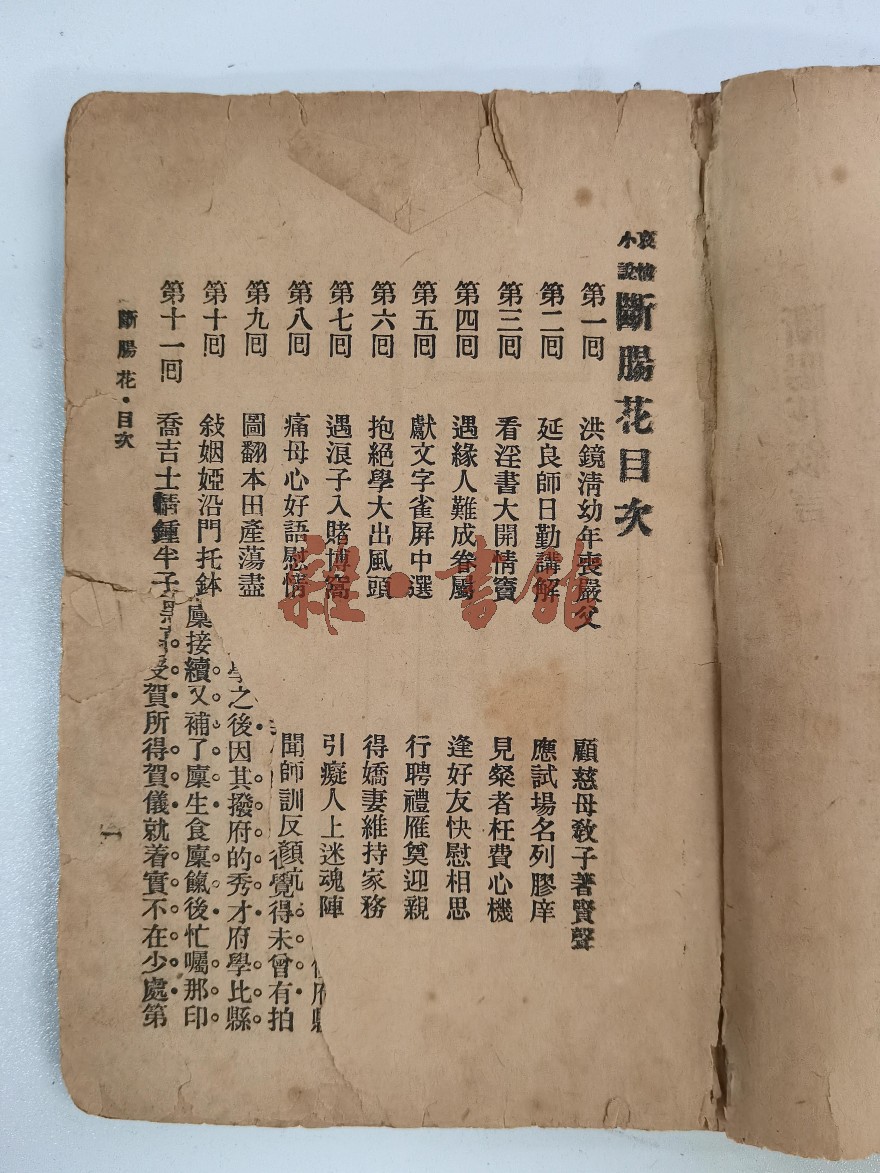 哀情小說 斷腸花目次
第一囘 洪鏡淸幼年喪嚴父 顧慈母敎子著賢聲
第二囘 延良師日勤講解 應試場名列膠庠
第三囘 看淫書大開情竇 見粲者枉費心機
第四囘 遇緣人難成眷屬 逢好友快慰相思
第五囘 獻文字雀屏中選 行聘禮雁奠迎親
第六囘 抱絕學大出風頭 得嬌妻維持家務
第七囘 遇浪子入賭博窩 引癡人上迷魂陣
第八囘 痛母心好語慰情 聞師訓反顏抗
第九囘 圖翻本田產蕩盡
第十囘 敍姻婭沿門托鉢
第十一囘 喬吉士情鍾半子
覺得未曾有拍
之後因其撥府的秀才府學比縣
廩接續又補了廩生食廩餼後忙囑那印
受賀所得賀儀就着實不在少處第
斷腸花·目次
一
雜·書館